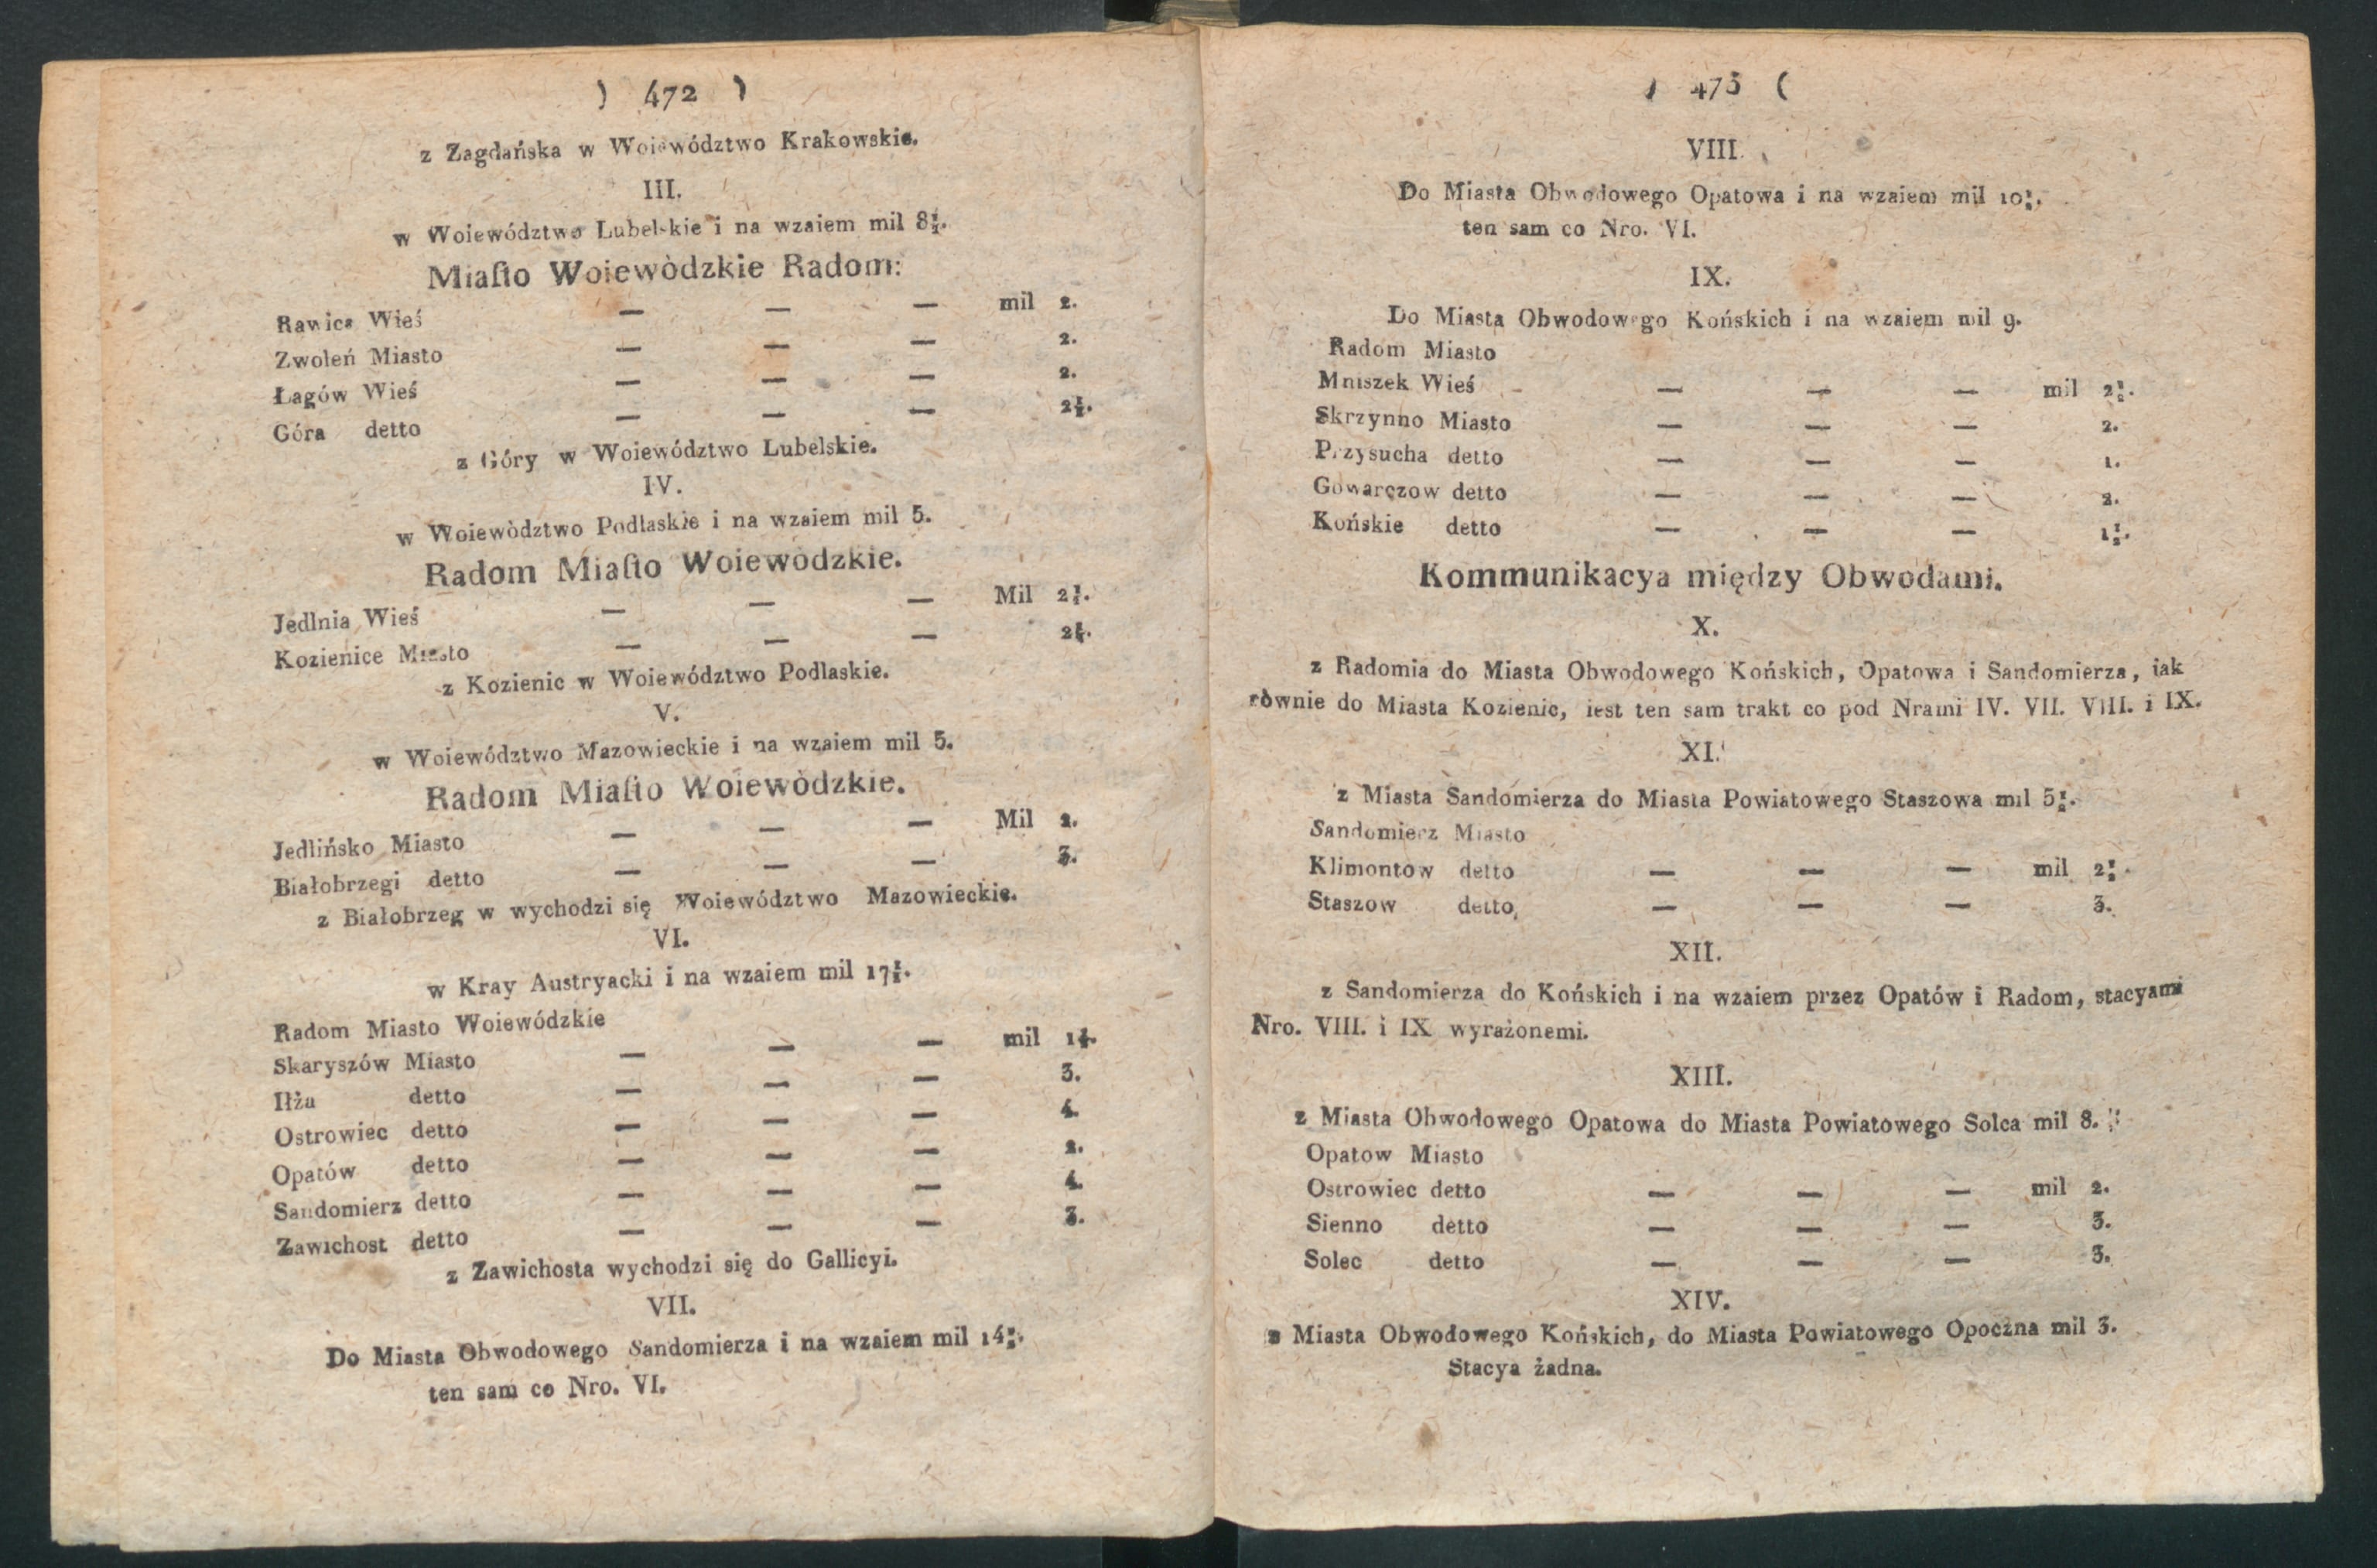 ) 472 )
z Zagdańska w Woiewództwo Krakowskie.
III.
w Woiewództwo Lubelskie i na wzaiem mil 8½.
Miaſto Woiewòdzkie Radom:
Rawica Wieś — — — mil 2.
Zwoleń Miasto — — — 2.
Łagów Wieś — — — 2.
Góra detto — — — 2½.
z Góry w Woiewództwo Lubelskie.
IV.
w Woiewòdztwo Podlaskie i na wzaiem mil 5.
Radom Miaſto Woiewòdzkie.
Jedlnia Wieś — — — Mil 2½.
Kozienice Miasto — — — 2½.
z Kozienic w Woiewództwo Podlaskie.
V.
w Woiewództwo Mazowieckie i na wzaiem mil 5.
Radom Miaſto Woiewòdzkie.
Jedlińsko Miasto — — — Mil 2.
Białobrzegi detto — — — 3.
z Białobrzeg w wychodzi się Woiewództwo Mazowieckie.
VI.
w Kray Austryacki i na wzaiem mil 17½.
Radom Miasto Woiewódzkie
Skaryszów Miasto — — — mil 1½.
Iłża detto — — — 3.
Ostrowiec detto — — — 4.
Opatów detto — — — 2.
Sandomierz detto — — — 4.
Zawichost detto — — — 3.
z Zawichosta wychodzi się do Gallicyi.
VII.
Do Miasta Obwodowego Sandomierza i na wzaiem mil 14½.
ten sam co Nro. VI.
) 473 (
VIII.
Do Miasta Obwodowego Opatowa i na wzaiem mil 10½.
ten sam co Nro. VI.
IX.
Do Miasta Obwodowego Końskich i na wzaiem mil 9.
Radom Miasto
Mniszek Wieś — — — mil 2½.
Skrzynno Miasto — — — 2.
Przysucha detto — — — 1.
Gowarczow detto — — — 2.
Końskie detto — — — 1½.
Kommunikacya między Obwodami.
X.
z Radomia do Miasta Obwodowego Końskich, Opatowa i Sandomierza, iak
równie do Miasta Kozienic, iest ten sam trakt co pod Nrami IV. VII. VIII. i IX.
XI.
z Miasta Sandomierza do Miasta Powiatowego Staszowa mil 5½.
Sandomierz Miasto
Klimontow detto — — — mil 2½.
Staszow detto — — — 3.
XII.
z Sandomierza do Końskich i na wzaiem przez Opatów i Radom, stacyami
Nro. VIII. i IX wyrażonemi.
XIII.
z Miasta Obwodowego Opatowa do Miasta Powiatowego Solca mil 8.
Opatow Miasto
Ostrowiec detto — — — mil 2.
Sienno detto — — — 3.
Solec detto — — — 3.
XIV.
z Miasta Obwodowego Końskich, do Miasta Powiatowego Opoczna mil 3.
Stacya żadna.